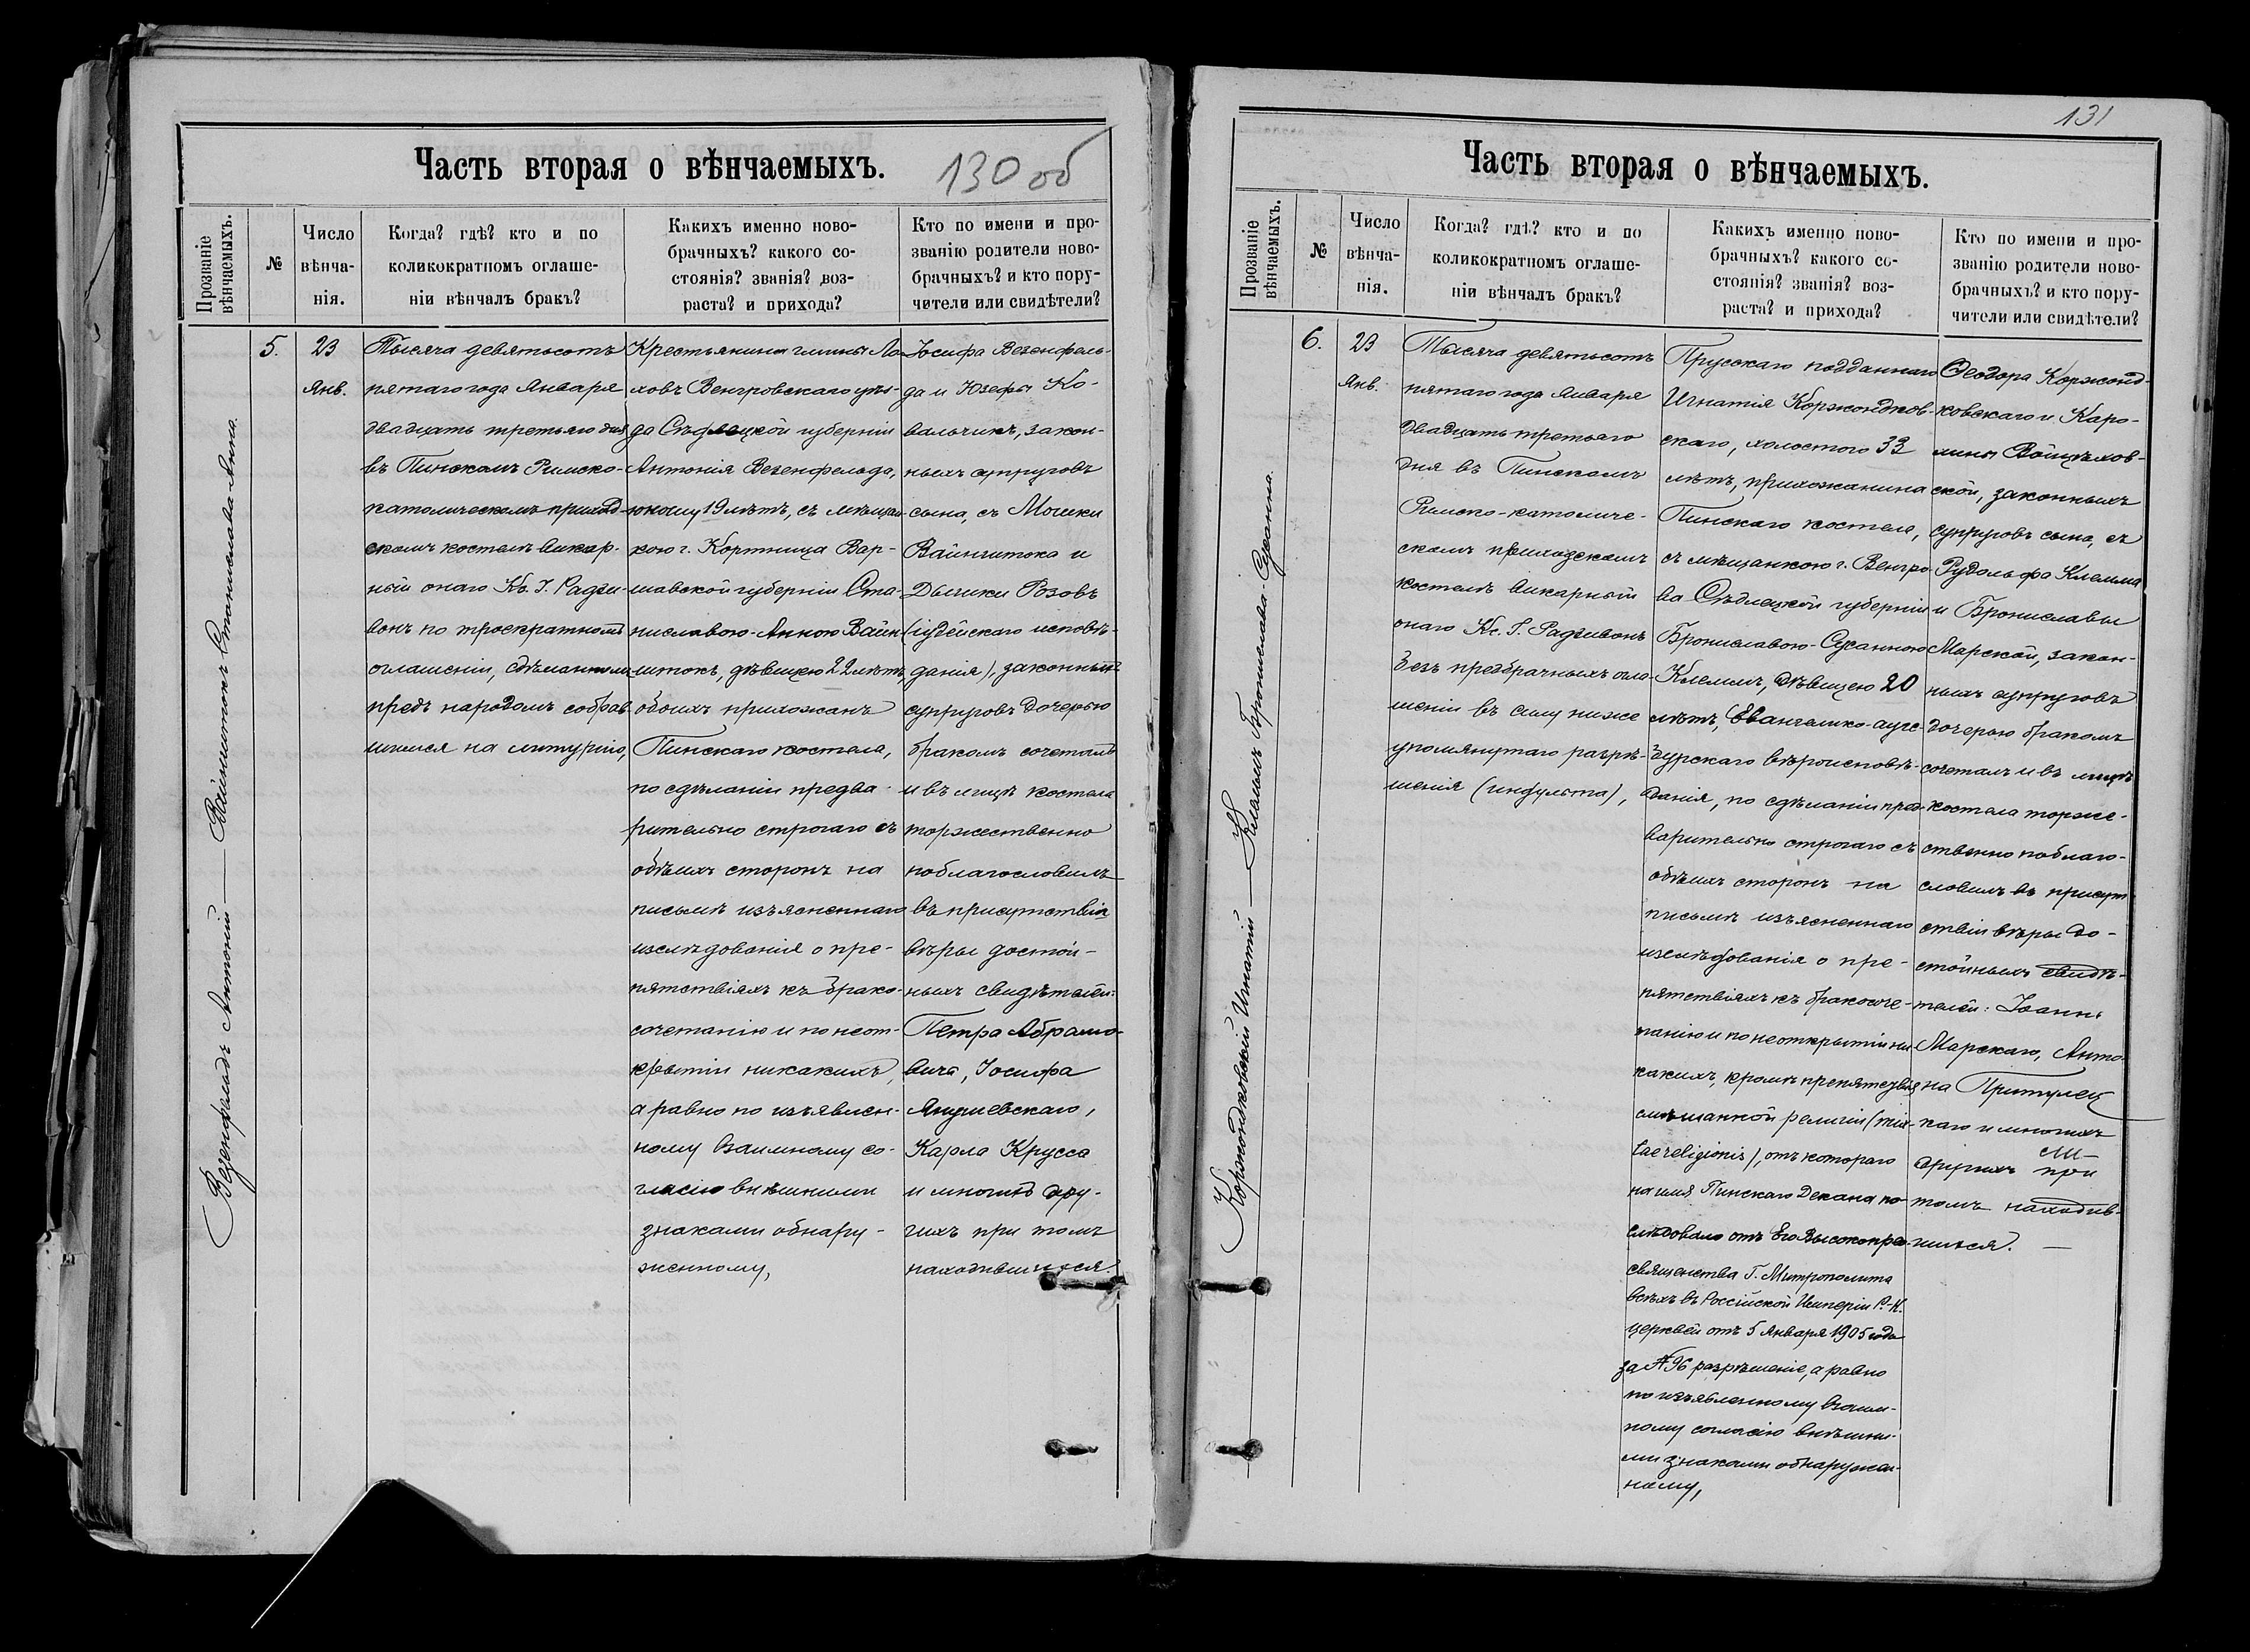 Часть вторая о вѣнчаемыхъ.
130 об
Прозваніе
вѣнчаемыхъ.
№
Число
вѣнча-
нія.
Когда? гдѣ? кто и по
коликократномъ оглаше-
ніи вѣнчалъ бракъ?
Какихъ именно ново-
брачныхъ? какого со-
стоянія? званія? воз-
раста? и прихода?
Кто по имени и про-
званію родители ново-
брачныхъ? и кто пору-
чители или свидѣтели?
Везенфельдъ Антоній — Вайнштокъ Станислава-Анна.
5.
23
Янв.
Тысяча девятьсотъ
пятаго года Января
двадцать третьяго дня
въ Пинскомъ Римско-
католическомъ приход-
скомъ костелѣ викар-
ный онаго Кс. І. Радзи-
вонъ по троекратномъ
оглашеніи, сдѣланномъ
предъ народомъ собрав-
шимся на литургію,
Крестьянина гмины Ло-
ховъ Венгровскаго уѣз-
да Сѣдлецкой губерніи
Антонія Везенфельда,
юношу 19 лѣтъ, съ мѣщан-
кою г. Кортница Вар-
шавской губерніи Ста-
ниславою-Анною Вайн-
штокъ, дѣвицею 22 лѣтъ,
обоихъ прихожанъ
Пинскаго костела,
по сдѣланіи предва-
рительно строгаго съ
обѣихъ сторонъ на
письмѣ изъясненнаго
изслѣдованія о пре-
пятствіяхъ къ брако-
сочетанію и по неот-
крытіи никакихъ,
а равно по изъявлен-
ному взаимному со-
гласію внѣшними
знаками обнару-
женному,
Іосифа Везенфель-
да и Юзефы Ко-
вальчикъ, закон-
ныхъ супруговъ
сына, съ Мошки
Вайнштока и
Дычки Розовъ
(іудейскаго исповѣ-
данія), законныхъ
супруговъ дочерью
бракомъ сочеталъ
и въ лицѣ костела
торжественно
поблагословилъ
въ присутствіи
вѣры достой-
ныхъ свидѣтелей:
Петра Абрамо-
вича, Іосифа
Янушевскаго,
Карла Крусса
и многихъ дру-
гихъ при томъ
находившихся.
131
Часть вторая о вѣнчаемыхъ.
Прозваніе
вѣнчаемыхъ.
№
Число
вѣнча-
нія.
Когда? гдѣ? кто и по
коликократномъ оглаше-
ніи вѣнчалъ бракъ?
Какихъ именно ново-
брачныхъ? какого со-
стоянія? званія? воз-
раста? и прихода?
Кто по имени и про-
званію родители ново-
брачныхъ? и кто пору-
чители или свидѣтели?
Коржондковскій Игнатій — Клеммъ Бронислава-Сусанна.
6.
23
Янв.
Тысяча девятьсотъ
пятаго года Января
двадцать третьяго
дня въ Пинскомъ
Римско-католиче-
скомъ приходскомъ
костелѣ викарный
онаго Кс. І. Радзивонъ
безъ предбрачныхъ огла-
шеній въ силу ниже
упомянутаго разрѣ-
шенія (индульта),
Прусскаго подданнаго
Игнатія Коржондков-
скаго, холостого 33
лѣтъ, прихожанина
Пинскаго костела,
съ мѣщанкою г. Венгро-
ва Сѣдлецкой губерніи
Брониславою-Сусанною
Клеммъ, дѣвицею 20
лѣтъ, Евангелико-аугс-
бургскаго вѣроисповѣ-
данія, по сдѣланіи пред-
варительно строгаго съ
обѣихъ сторонъ на
письмѣ изъясненнаго
изслѣдованія о пре-
пятствіяхъ къ бракосоче-
танію и по неоткрытіи ни-
какихъ, кромѣ препятствія
смѣшанной религіи (mix-
tae religionis), отъ котораго
на имя Пинскаго Декана по-
слѣдовало отъ Его Высокопрео-
священства Г. Митрополита
всѣхъ въ Россійской Имперіи Р.-К.
церквей отъ 5 Января 1905 года
за № 96 разрѣшеніе, а равно
по изъявленному взаим-
ному согласію внѣшни-
ми знаками обнаружен-
ному,
Ѳеодора Коржонд-
ковскаго и Каро-
лины Войцѣхов-
ской, законныхъ
супруговъ сына, съ
Рудольфа Клемма
и Брониславы
Марской, закон-
ныхъ супруговъ
дочерью бракомъ
сочеталъ и въ лицѣ
костела торже-
ственно поблаго-
словилъ въ присут-
ствіи вѣры до-
стойныхъ свидѣ-
телей: Іоанна
Марскаго, Анто-
на Притулец-
каго и многихъ
другихъ при
томъ находив-
шихся. —